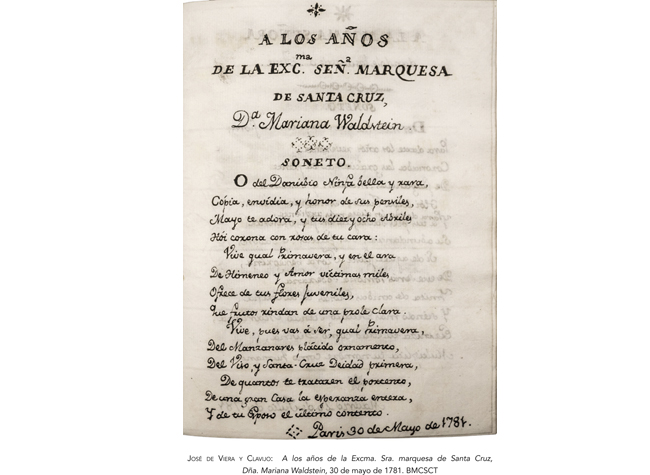 A LOS AÑOS
DE LA EXC.ma SEÑ.a MARQUESA
DE SANTA CRUZ,
D.a Mariana Waldstein
SONETO.
O del Danubio Ninfa bella y rara,
Copia, envidia, y honor de sus pensiles,
Mayo te adora, y tus diez y ocho Abriles
Hoi corona con rosas de tu cara:
Vive qual Primavera, y en el ara
De Himeneo y Amor victimas miles
Ofrece de tus flores juveniles,
Que frutos rindan de una prole clara.
Vive, pues vas á ser, qual Primavera,
Del Manzanares plácido ornamento,
Del Viso y Santa Cruz Deidad primera,
De quantos te trataren el portento,
De una gran Casa la esperanza entera,
Y de tu Esposo el ultimo contento.
Paris 30 de Mayo de 1781.
JOSÉ DE VIERA Y CLAVIJO: A los años de la Excma. Sra. marquesa de Santa Cruz,
Dña. Mariana Waldstein, 30 de mayo de 1781. BMCSCT